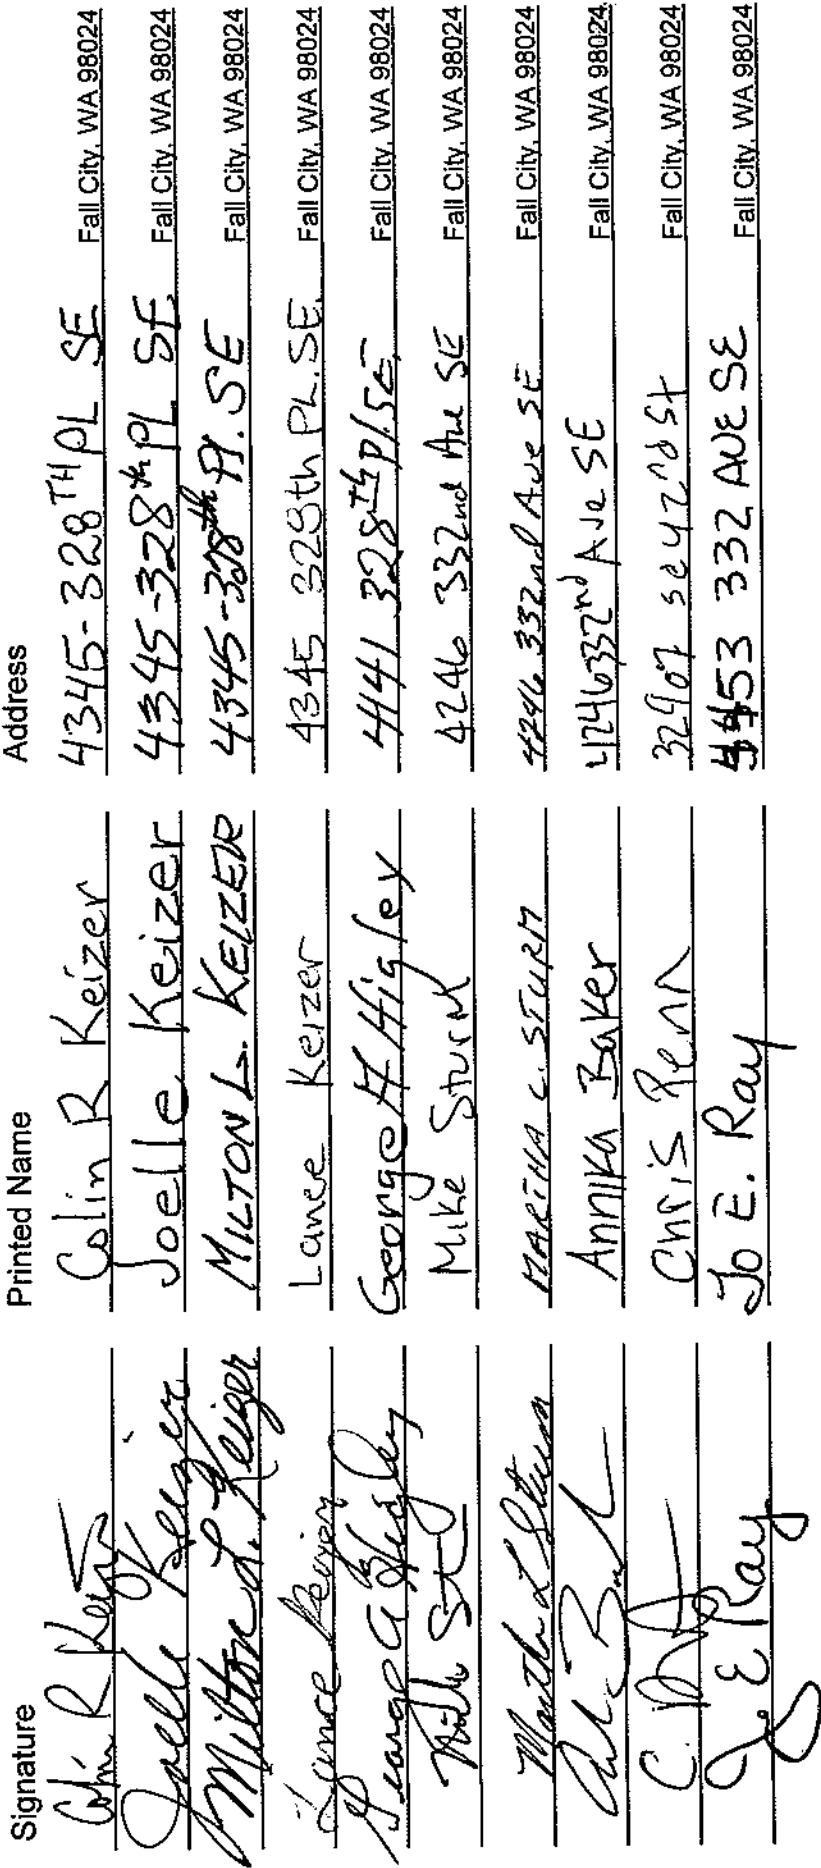 Signature Printed Name Address
Colin R Keizer Colin R Keizer 4345-328TH PL SE Fall City, WA 98024
Joelle Keizer Joelle Keizer 4345-328th PL SE Fall City, WA 98024
Milton L. Keizer MILTON L. KEIZER 4345-328th Pl. SE Fall City, WA 98024
Lance Keizer Lance Keizer 4345 328th PL.SE. Fall City, WA 98024
George A Higley George A Higley 4141 328th pl.SE Fall City, WA 98024
Mike Mike Sturm 4246 332nd Ave SE Fall City, WA 98024
Martha L Sturm MARTHA L. STURM 4246 332nd Ave SE Fall City, WA 98024
Annika Baker 4246332nd Ave SE Fall City, WA 98024
C. Chris Penn 32907 se 42nd St Fall City, WA 98024
Jo E Ray Jo E. Ray 332 AVE SE Fall City, WA 98024